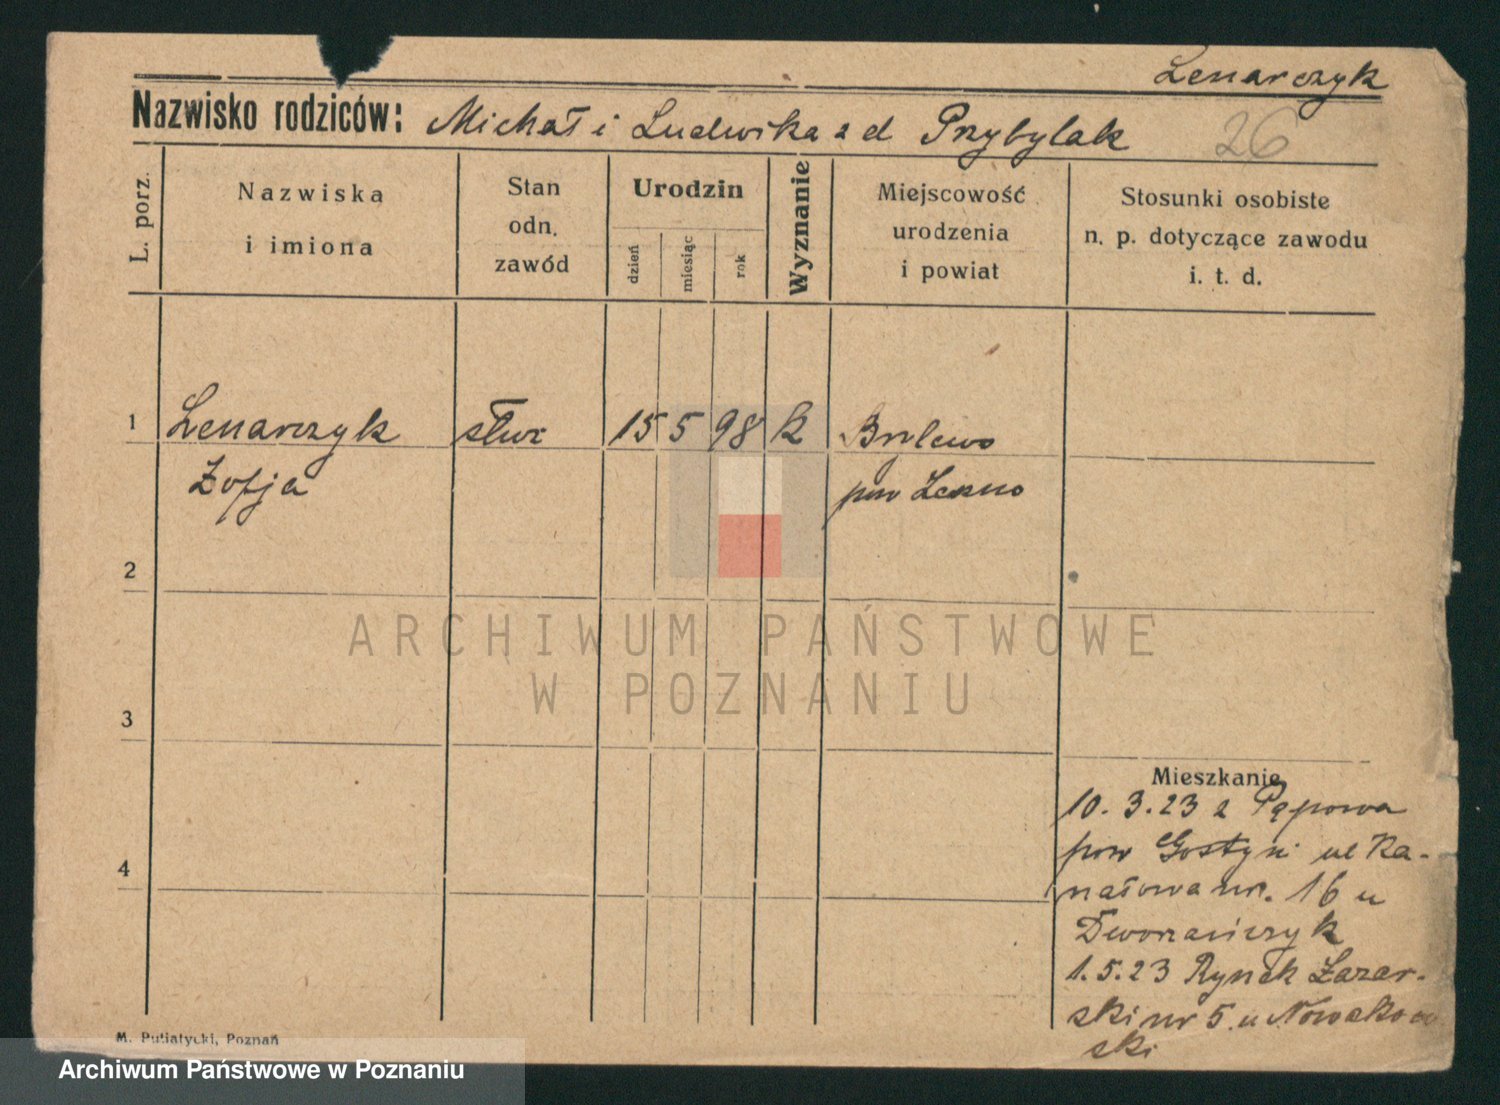 Lenarczyk
Nazwisko rodziców: Michał i Ludwika z d Przybylak
26
L. porz.
Nazwiska
i imiona
Stan
odn.
zawód
Urodzin
dzień
miesiąc
rok
Wyznanie
Miejscowość
urodzenia
i powiat
Stosunki osobiste
n. p. dotyczące zawodu
i. t. d.
1 Lenarczyk służ 15 5 98 k Brylewo
Zofja pow Leszno
2
3
4
Mieszkanie
10. 3. 23 z Pępowa
pow Gostyń ul Ka-
nałowa nr. 16 u
1. 5. 23 Rynek Łazar-
ski nr 5 u Nowakow
ski
M. Putiatycki, Poznań
ARCHIWUM PAŃSTWOWE
W POZNANIU
Archiwum Państwowe w Poznaniu